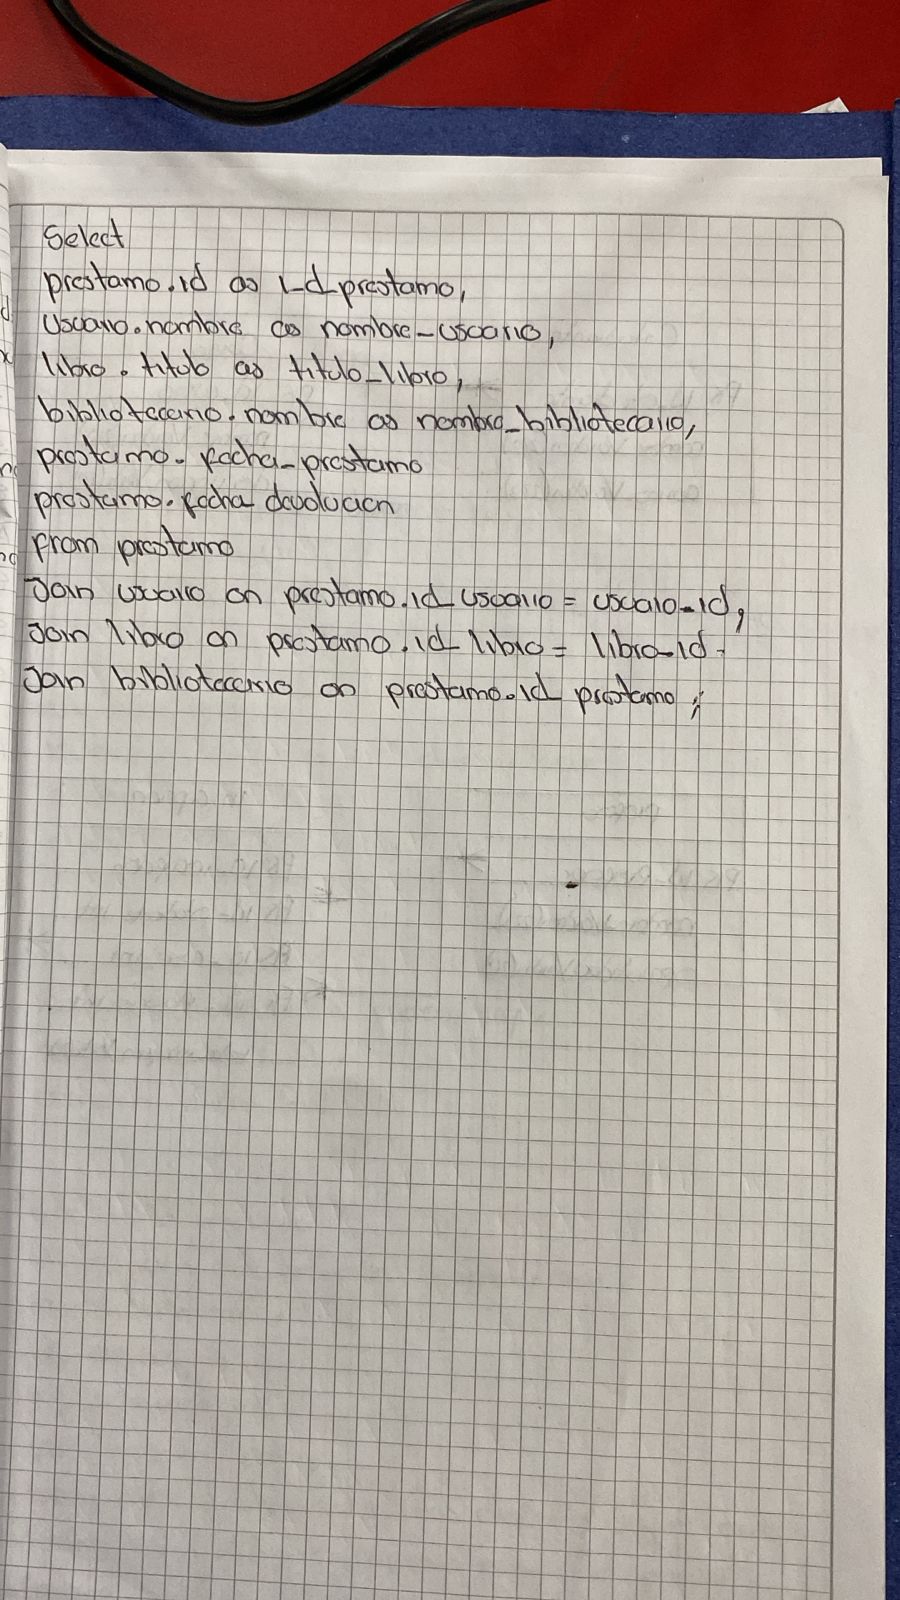 Select
prestamo.id as id_prestamo,
usuario.nombre as nombre_usuario,
libro.titulo as titulo_libro,
bibliotecario.nombre as nombre_bibliotecario,
prestamo.fecha_prestamo
prestamo.fecha devolucion
from prestamo
Join usuario on prestamo.id_usuario = usuario_id,
Join libro on prestamo.id_libro = libro_id.
Join bibliotecario on prestamo.id prestamo;